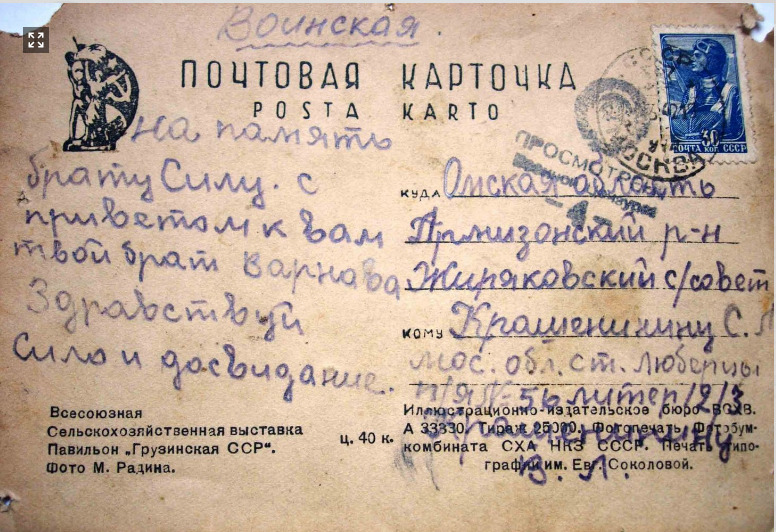 Воинская.
ПОЧТОВАЯ КАРТОЧКА
POSTA KARTO
на память
брату Силу. с
приветом к вам
твой брат Варнава
Здравствуй
Сило и досвидание.
СССР
МОСКВА
30
ПОЧТА КОП. СССР
ПРОСМОТРЕНО
Военной Цензурой
-4-
КУДА Омская область
Армизонский р-н
Жиряковский с/совет
КОМУ Крашенинину С. Л
мос. обл. ст. Люберцы
п/я № 56 литер 12/3
Крашенинину
В. Л.
Всесоюзная
Сельскохозяйственная выставка
Павильон „Грузинская ССР".
Фото М. Радина.
ц. 40 к.
Иллюстрационно-издательское бюро ВСХВ.
А 33330. Тираж 25000. Фотопечать Фотобум-
комбината СХА НКЗ СССР. Печать типо-
графии им. Евг. Соколовой.